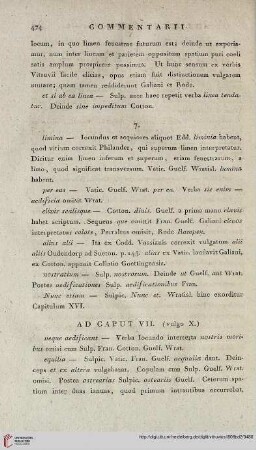 474 COMMENTARII
locum, in quo linea fenestrae futurum erat deinde ut exporia-
mur, num inter lineam et parietem oppositum spatium puri coeli
satis amplum prospicere possimus. Ut hunc sensum ex verbis
Vitruvii facile dicias, opus etiam fuit distinctionem vulgatam
mutare; quam tamen reddiderunt Galiani et Rode.
et si ab ea linea — Sulp. ante haec repetit verba linea tenda-
tur. Deinde sine impeditum Cotton.
7.
limina — Iocundus et sequiores aliquot Edd. lumina habent,
quod vitium correxit Philander, qui superum linen interpretatur.
Dicitur enim limen inferum et superum, etiam fenestrarum, a
lino, quod significat transversum. Vatic. Guelf. Wratisl. lumina
habent.
per eas — Vatic. Guelf. Wrat. per ea. Verba sic enim —
aedificia omittit Wrat.
clivis scalisque — Cotton. divis. Guelf. a prima manu clevis
habet scriptum. Sequens que omittit Fran. Guelf. Galiani clevos
interpretatus calate, Perraltus omisit, Rode Rampen.
aliis alii — Ita ex Codd. Vossianis correxit vulgatum alii
aliis Oudendorp ad Sueton. p. 243. aliae ex Vatic. laudavit Galiani,
ex Cotton. appinxit Collatio Goettingensis.
nostratium — Sulp. nostrorum. Deinde ut Guelf. aut Wrat.
Postea aedificationes Sulp. aedificationibus Fran.
Nunc etiam — Sulpic. Nunc et. Wratisl. hinc exorditur
Capitulum XVI.
AD CAPUT VII. (vulgo X.)
neque aedificant — Verba Iocundo interserta nostris mori-
bus omisi cum Sulp. Fran. Cotton. Guelf. Wrat.
equilia — Sulpic. Vatic. Fran. Guelf. aequalia dant. Dein-
ceps et ex altera vulgabatur. Copulam cum Sulp. Guelf. Wrat.
omisi. Postea ostreariis Sulpic. ostcariis Guelf. Ceterum spa-
tium inter duas ianuas, quod primum introeuntibus occurrebat,